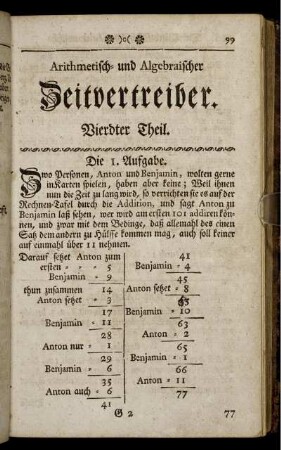 ❋ )o( ❋ 99
Arithmetisch- und Algebraischer
Zeitvertreiber.
Vierdter Theil.
Die 1. Aufgabe.
Zwo Personen, Anton und Benjamin, wolten gerne
in Karten spielen, haben aber keine; Weil ihnen
nun die Zeit zu lang wird, so verrichten sie es auf der
Rechnen-Tafel durch die Addition, und sagt Anton zu
Benjamin laß sehen, wer wird am ersten 101 addiren kön-
nen, und zwar mit dem Bedinge, daß allemahl des einen
Satz dem andern zu Hülffe kommen mag, auch soll keiner
auf einmahl über 11 nehmen.
Darauf setzet Anton zum
ersten = = 5
Benjamin = 9
thun zusammen 14
Anton setzet = 3
17
Benjamin = 11
28
Anton nur = 1
29
Benjamin = 6
35
Anton auch = 6
41
41
Benjamin = 4
45
Anton setzet = 8
53
Benjamin = 10
63
Anton = 2
65
Benjamin = 1
66
Anton = 11
77
G 2 77